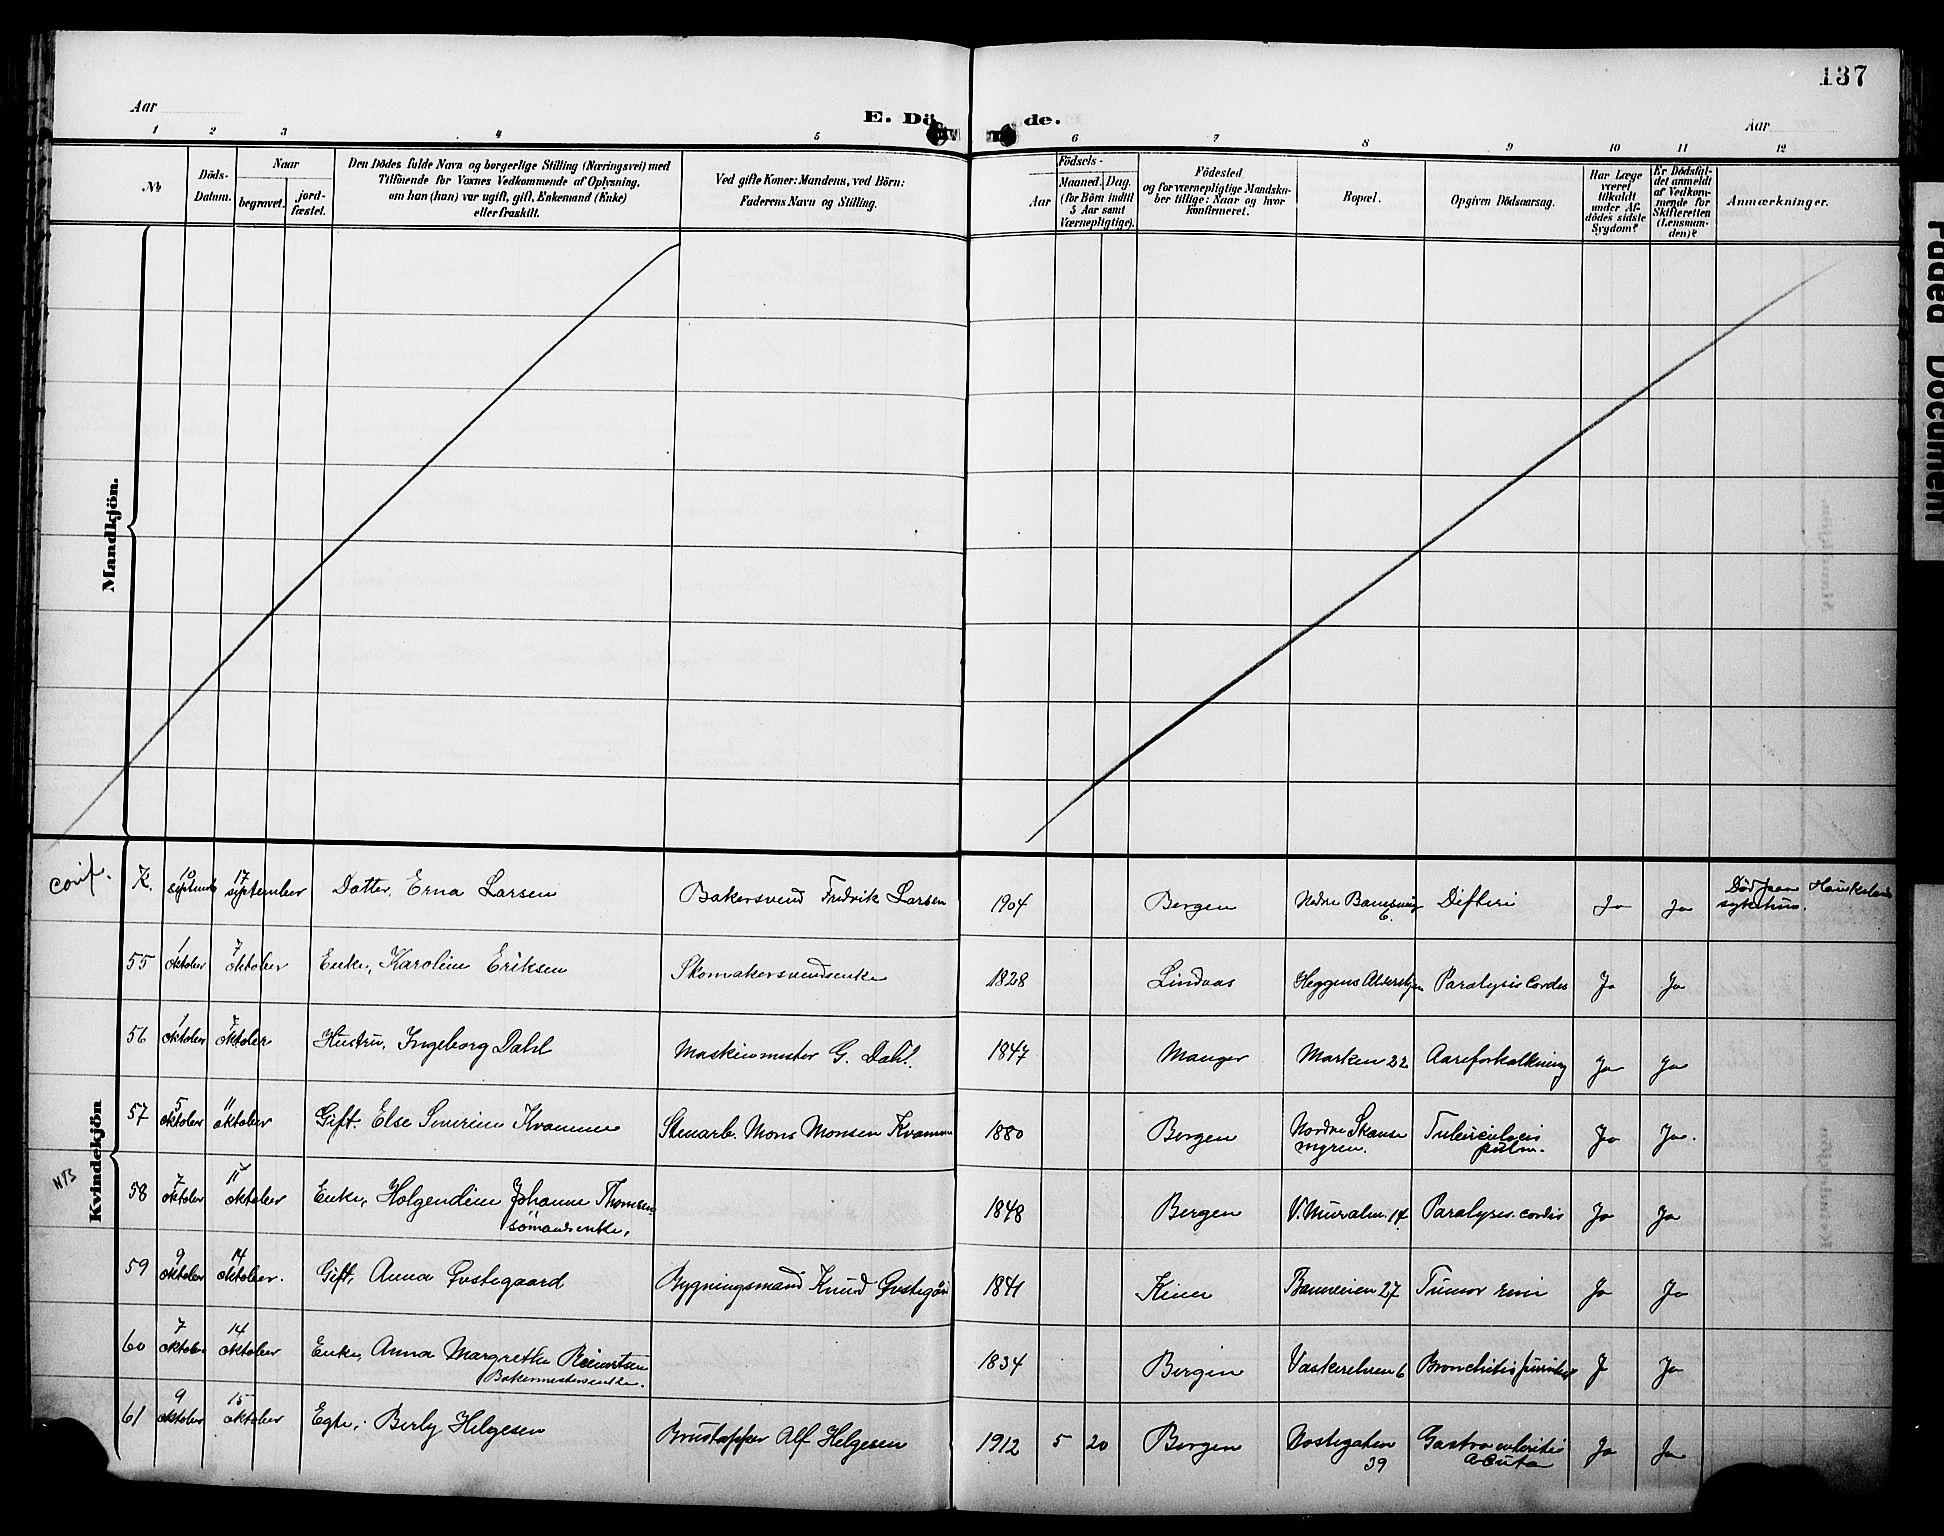 137
Aar
E. Dö
de.
Aar
1 2 3 4 5 6 7 8 9 10 11 12
№
Döds-
Datum.
Naar
begravet.
jord-
fæstet.
Den Dödes fulde Navn og borgerlige Stilling (Næringsvei) med
Tilföiende for Voxnes Vedkommende af Oplysning,
om han (hun) var ugift, gift, Enkemand (Enke)
eller fraskilt.
Ved gifte Koner: Mandens, ved Börn:
Faderens Navn og Stilling.
Födsels-
Aar
Maaned.
Dag.
(for Börn indtil
5 Aar samt
Værnepligtige).
Födested
og for værnepligtige Mandska-
ber tillige: Naar og hvor
konfirmeret.
Bopæl.
Opgiven Dödsaarsag.
Har Læge
været
tilkaldt
under Af-
dödes sidste
Sygdom?
Er Dödsfal-
det anmeldt
af Vedkom-
mende for
Skifteretten
(Lensman-
den)?
Anmærkninger.
Mandkjön.
Kvindekjön
conf. K. 10 september 17 september Datter, Erna Larsen Bakersvend Fredrik Larsen 1904 Bergen Nedre Difteri Ja Ja Død paa Haukeland
sykehus.
55 1 oktober 7 oktober Enke, Karoline Eriksen Skomakersvendsenke 1828 Lindaas Heggens Paralysis Cordis Ja Ja
56 1 oktober 7 oktober Hustru, Ingeborg Dahl Maskinmester G. Dahl. 1847 Manger Marken 22 Aareforkalkning Ja Ja
57 5 oktober 11 oktober Gift. Else Severine Kvamme Stenarb. Mons Monsen Kvamme 1880 Bergen Nordre Skanse
myren. Tuberculosis
pulm. Ja Ja.
NB
58 7 oktober 11 oktober Enke, Holgendine Johanne Thomsen
sømandsenke, 1848 Bergen V. Muralm. 14 Paralysis cordis Ja Ja
59 9 oktober 14 oktober. Gift, Anna Gvstegaard Bygningsmand Knud 1841 Kinn 27 Tumor Ja Ja
60 7 oktober 14 oktober Enke, Anna Margrethe Reinertsen
Bakermestersenke. 1834 Bergen Vaskerelven 6 Bronchitis Ja Ja
61 9 oktober 15 oktober Egte, Berly Helgesen Brustapper Alf Helgesen 1912 5 20 Bergen Nostegaten
39 Gastroenteritis
acuta Ja Ja
Faded Document